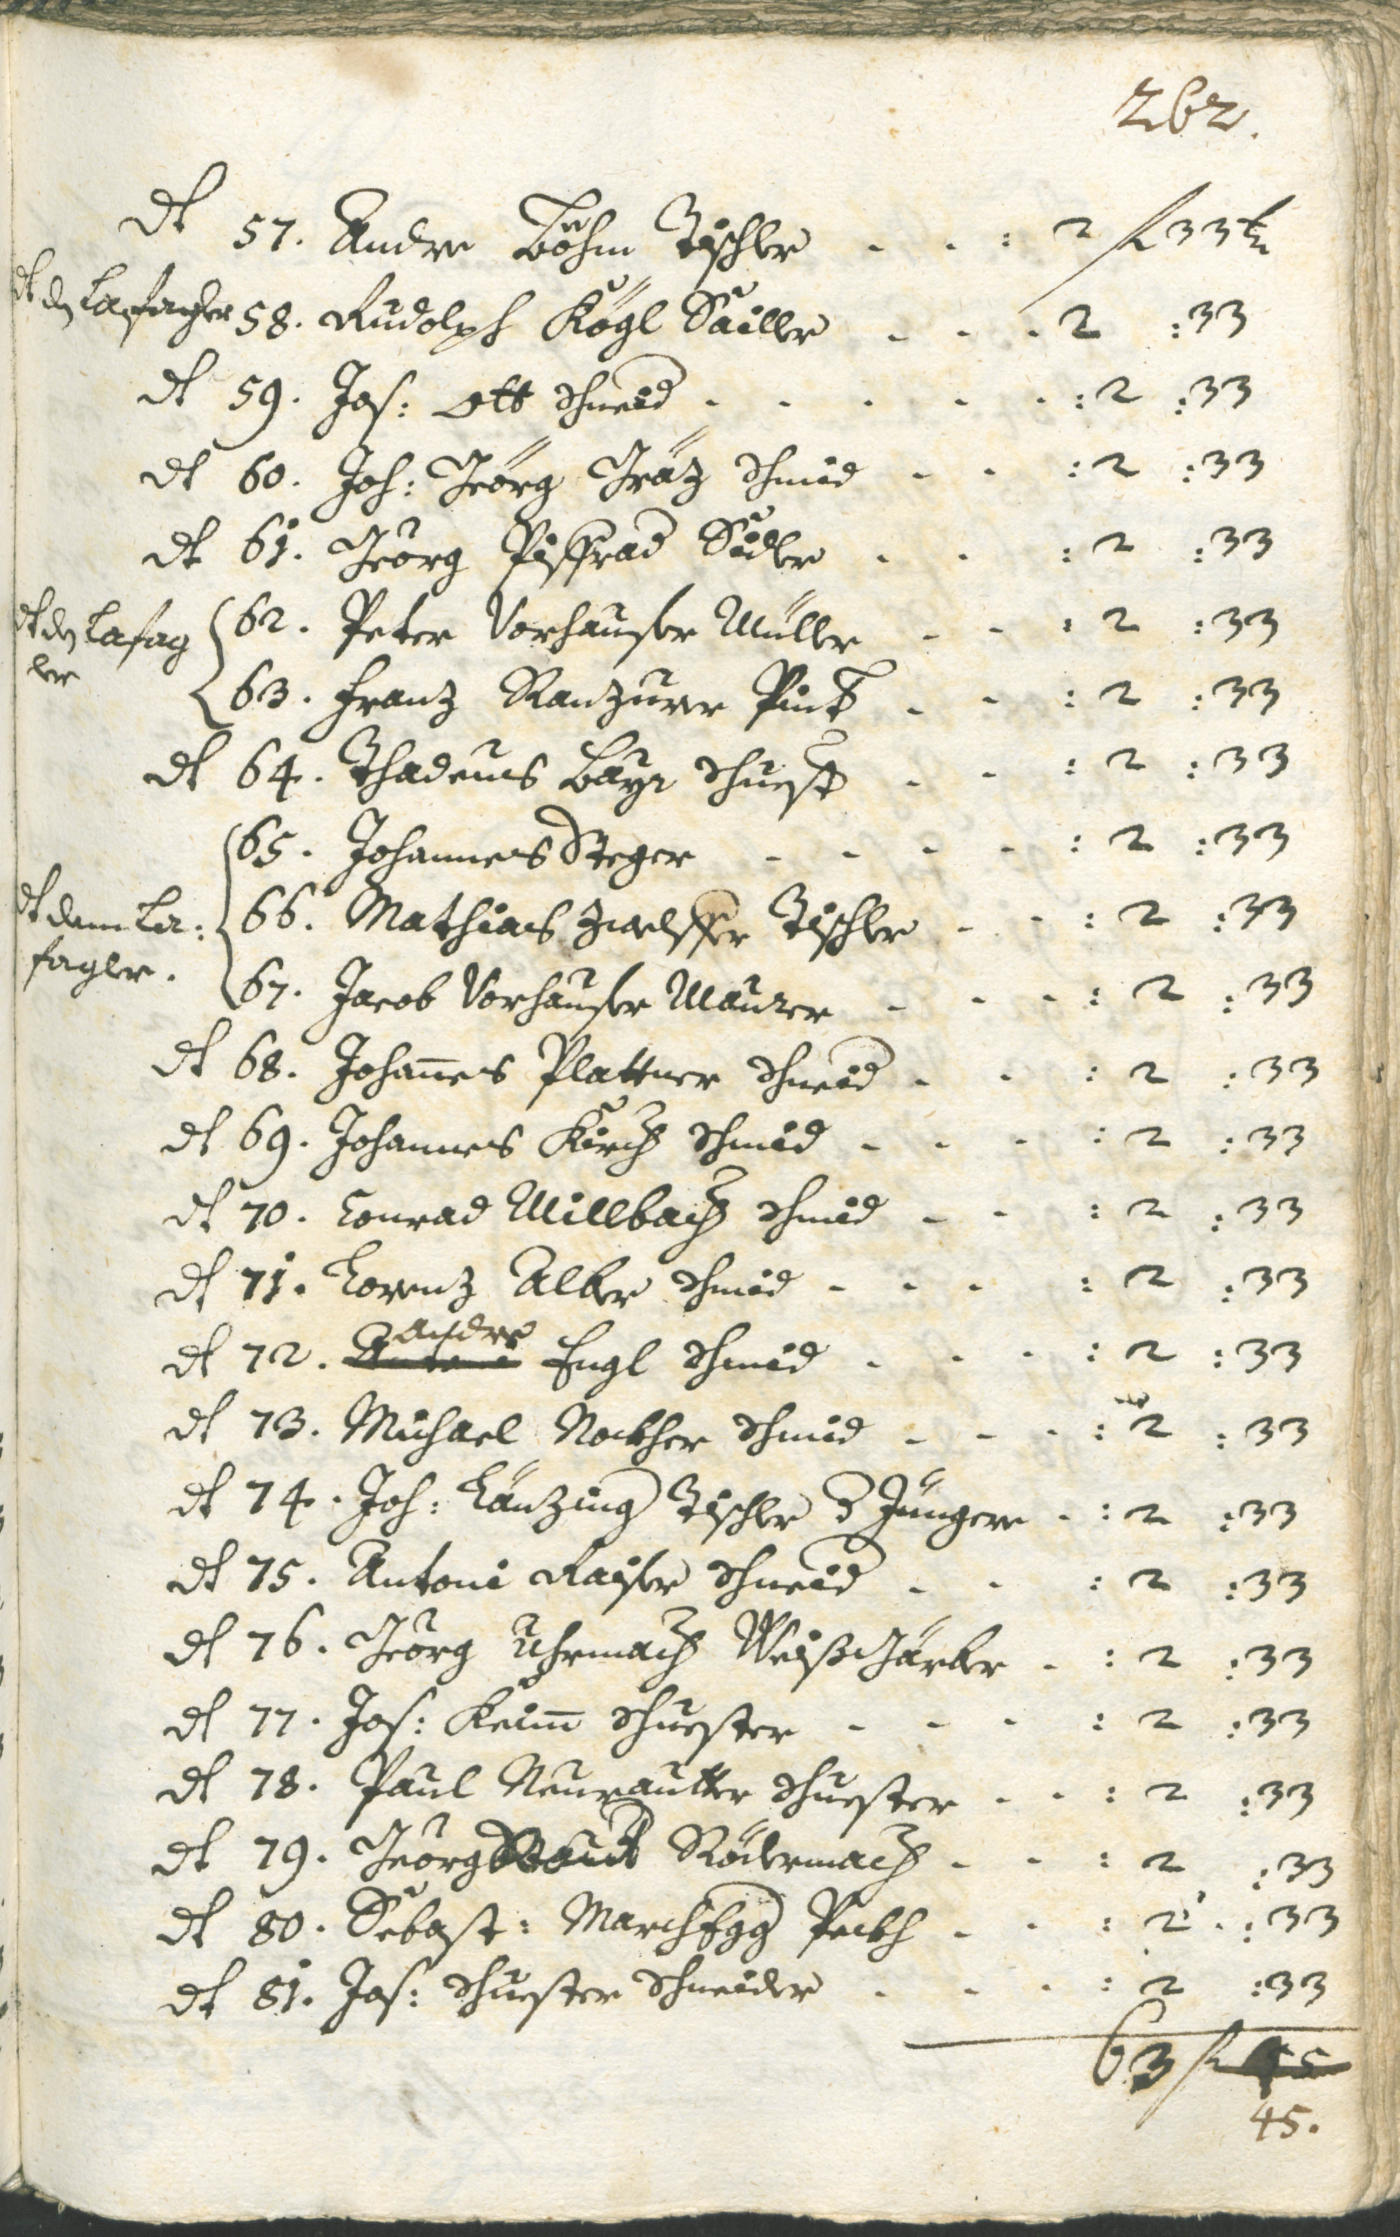 262.
dt 57. Andre Böhm Tischler - - : 2 f 33 kr
dt dem Lasagler 58. Rudolph Kögl Sailler - - - 2 : 33
dt 59. Jos: Ott Schneid - - - - - : 2 : 33
dt 60. Joh: Geörg Gräz Schmid - - : 2 : 33
dt 61. Geörg Pissrad Sidler - - : 2 : 33
dt dem Lasag 62. Peter Vorhauser Müller - - : 2 : 33
ler 63. Franz Ranzurer Pint - - : 2 : 33
dt 64. Thadeus Bayr Schuest - - : 2 : 33
65. Johannes Steger - - - - : 2 : 33
dt dem La: 66. Mathias Tischler - - : 2 : 33
sagler. 67. Jacob Vorhauser Maurer - - - : 2 : 33
dt 68. Johannes Plattner Schneid - - : 2 : 33
dt 69. Johannes Kirch Schmid - - - : 2 : 33
dt 70. Conrad Millbach Schmid - - : 2 : 33
dt 71. Lorenz Alber Schmid - - - : 2 : 33
dt 72. Andre Engl Schmid - - - : 2 : 33
dt 73. Michael Nockher Schmid - - - : 2 : 33
dt 74. Joh: Länzing Tischler d Jüngere - : 2 : 33
dt 75. Antoni Raiser Schneid - - : 2 : 33
dt 76. Geörg Uhrmach Weißgärber - : 2 : 33
dt 77. Jos: Keim Schuester - - - : 2 : 33
dt 78. Paul Neurautter Schuester - - : 2 : 33
dt 79. Geörg Rödermach - - : 2 : 33
dt 80. Sebast: MarchEgg Peckh - - : 2 : 33
dt 81. Jos: Schuester Schneider - - - : 2 : 33
63 f
45.